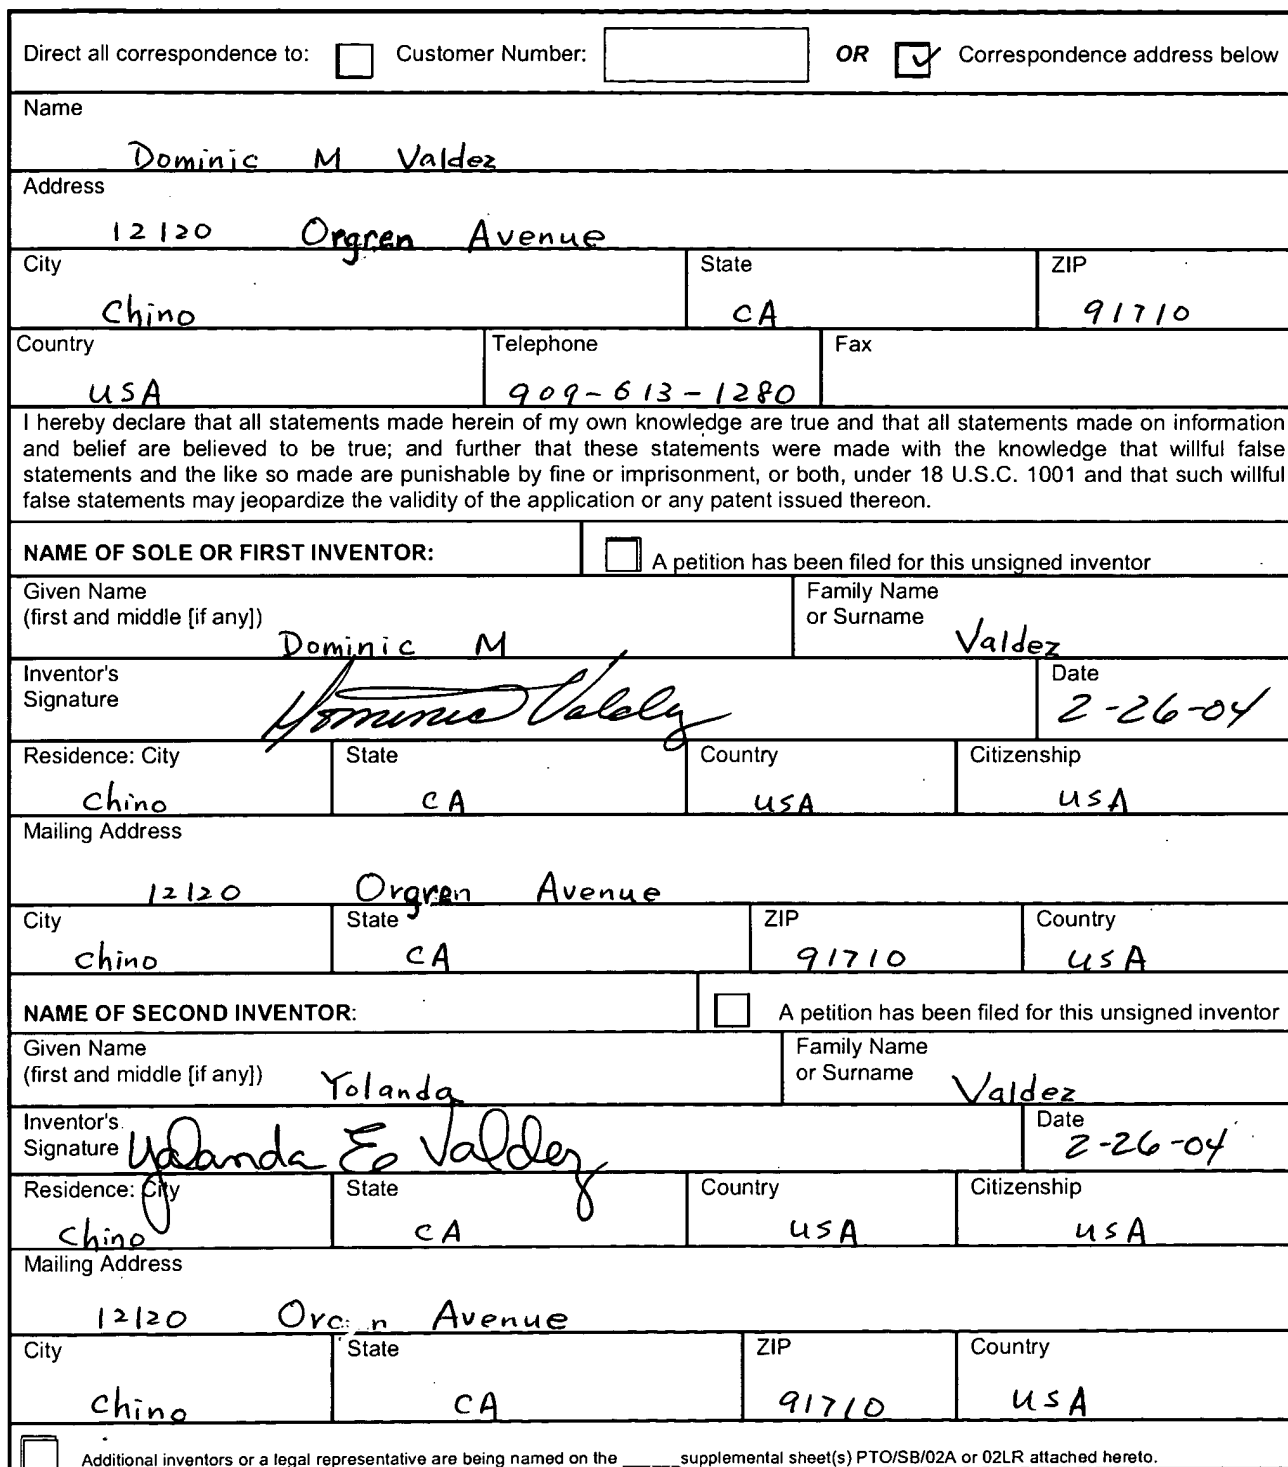 Direct all correspondence to: Customer Number: OR Correspondence address below
Name
Dominic M Valdez
Address
12120 Orgren Avenue
City State ZIP
Chino CA 91710
Country Telephone Fax
USA 909-613-1280
I hereby declare that all statements made herein of my own knowledge are true and that all statements made on information
and belief are believed to be true; and further that these statements were made with the knowledge that willful false
statements and the like so made are punishable by fine or imprisonment, or both, under 18 U.S.C. 1001 and that such willful
false statements may jeopardize the validity of the application or any patent issued thereon.
NAME OF SOLE OR FIRST INVENTOR: A petition has been filed for this unsigned inventor
Given Name Family Name
(first and middle [if any]) or Surname
Dominic M Valdez
Inventor's Date
Signature Dominic Valdez 2-26-04
Residence: City State Country Citizenship
Chino CA USA USA
Mailing Address
12120 Orgren Avenue
City State ZIP Country
Chino CA 91710 USA
NAME OF SECOND INVENTOR: A petition has been filed for this unsigned inventor
Given Name Family Name
(first and middle [if any]) or Surname
Yolanda Valdez
Inventor's Date
Signature Yolanda E Valdez 2-26-04
Residence: City State Country Citizenship
Chino CA USA USA
Mailing Address
12120 Avenue
City State ZIP Country
Chino CA 91710 USA
Additional inventors or a legal representative are being named on the ______supplemental sheet(s) PTO/SB/02A or 02LR attached hereto.